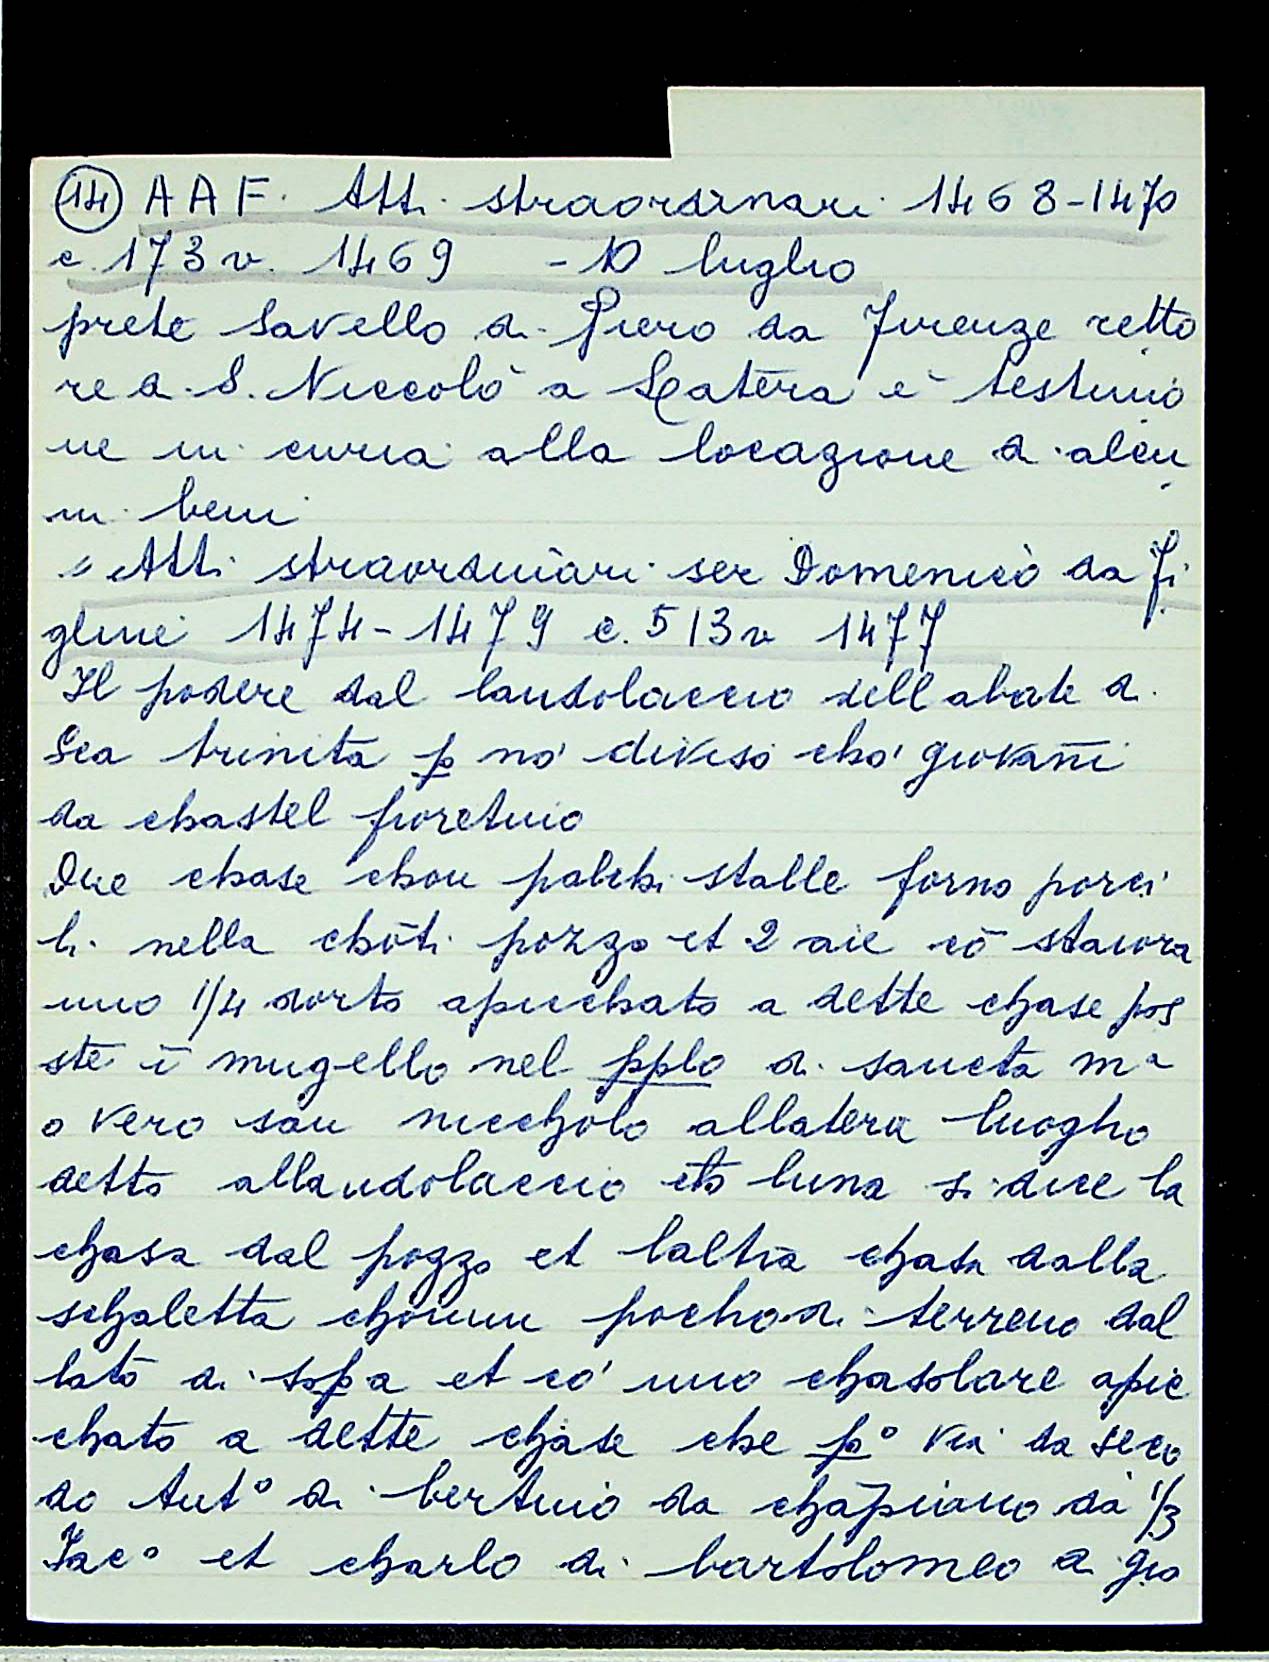 (14) A A F. Atti straordinari 1468-1470
c. 173 v. 1469 - 10 luglio
prete Savello di Piero da Firenze retto
re di S. Niccolò a Latera è testimo
ne in curia alla locazione di alcu
ni beni
" Atti straordinari ser Domenico da Fi
gline 1474-1479 c. 513 v 1477
Il podere dal landolaccio dell abate di
Sca trinita p no diviso cho' giovañi
da chastel fiorentino
Due chase chon palchi stalle forno porci
li nella chōti pozzo et 2 aie cō staiora
uno 1/4 dorto apicchato a dette chase pos
ste ī mugello nel pplo di sancta mª
o vero san nicholo allatera luogho
detto allandolaccio et luna si dice la
chasa dal pozzo et laltra chasa dalla
schaletta chonun pocho di terreno dal
lato di sopa et co' uno chasolare apic
chato a dette chase che pº via da seco
do Antº di bertino da chapiano da 1/3
Jacº et charlo di bartolomeo di gio